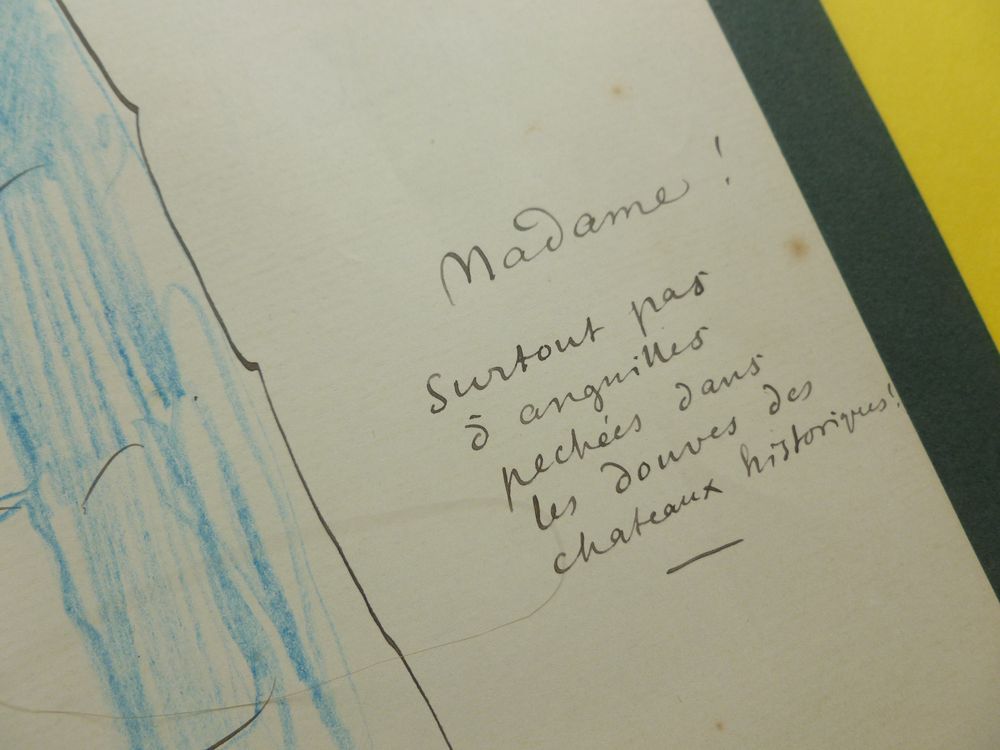 Madame !
Surtout pas
d'anguilles
pechées dans
les douves des
chateaux historiques!